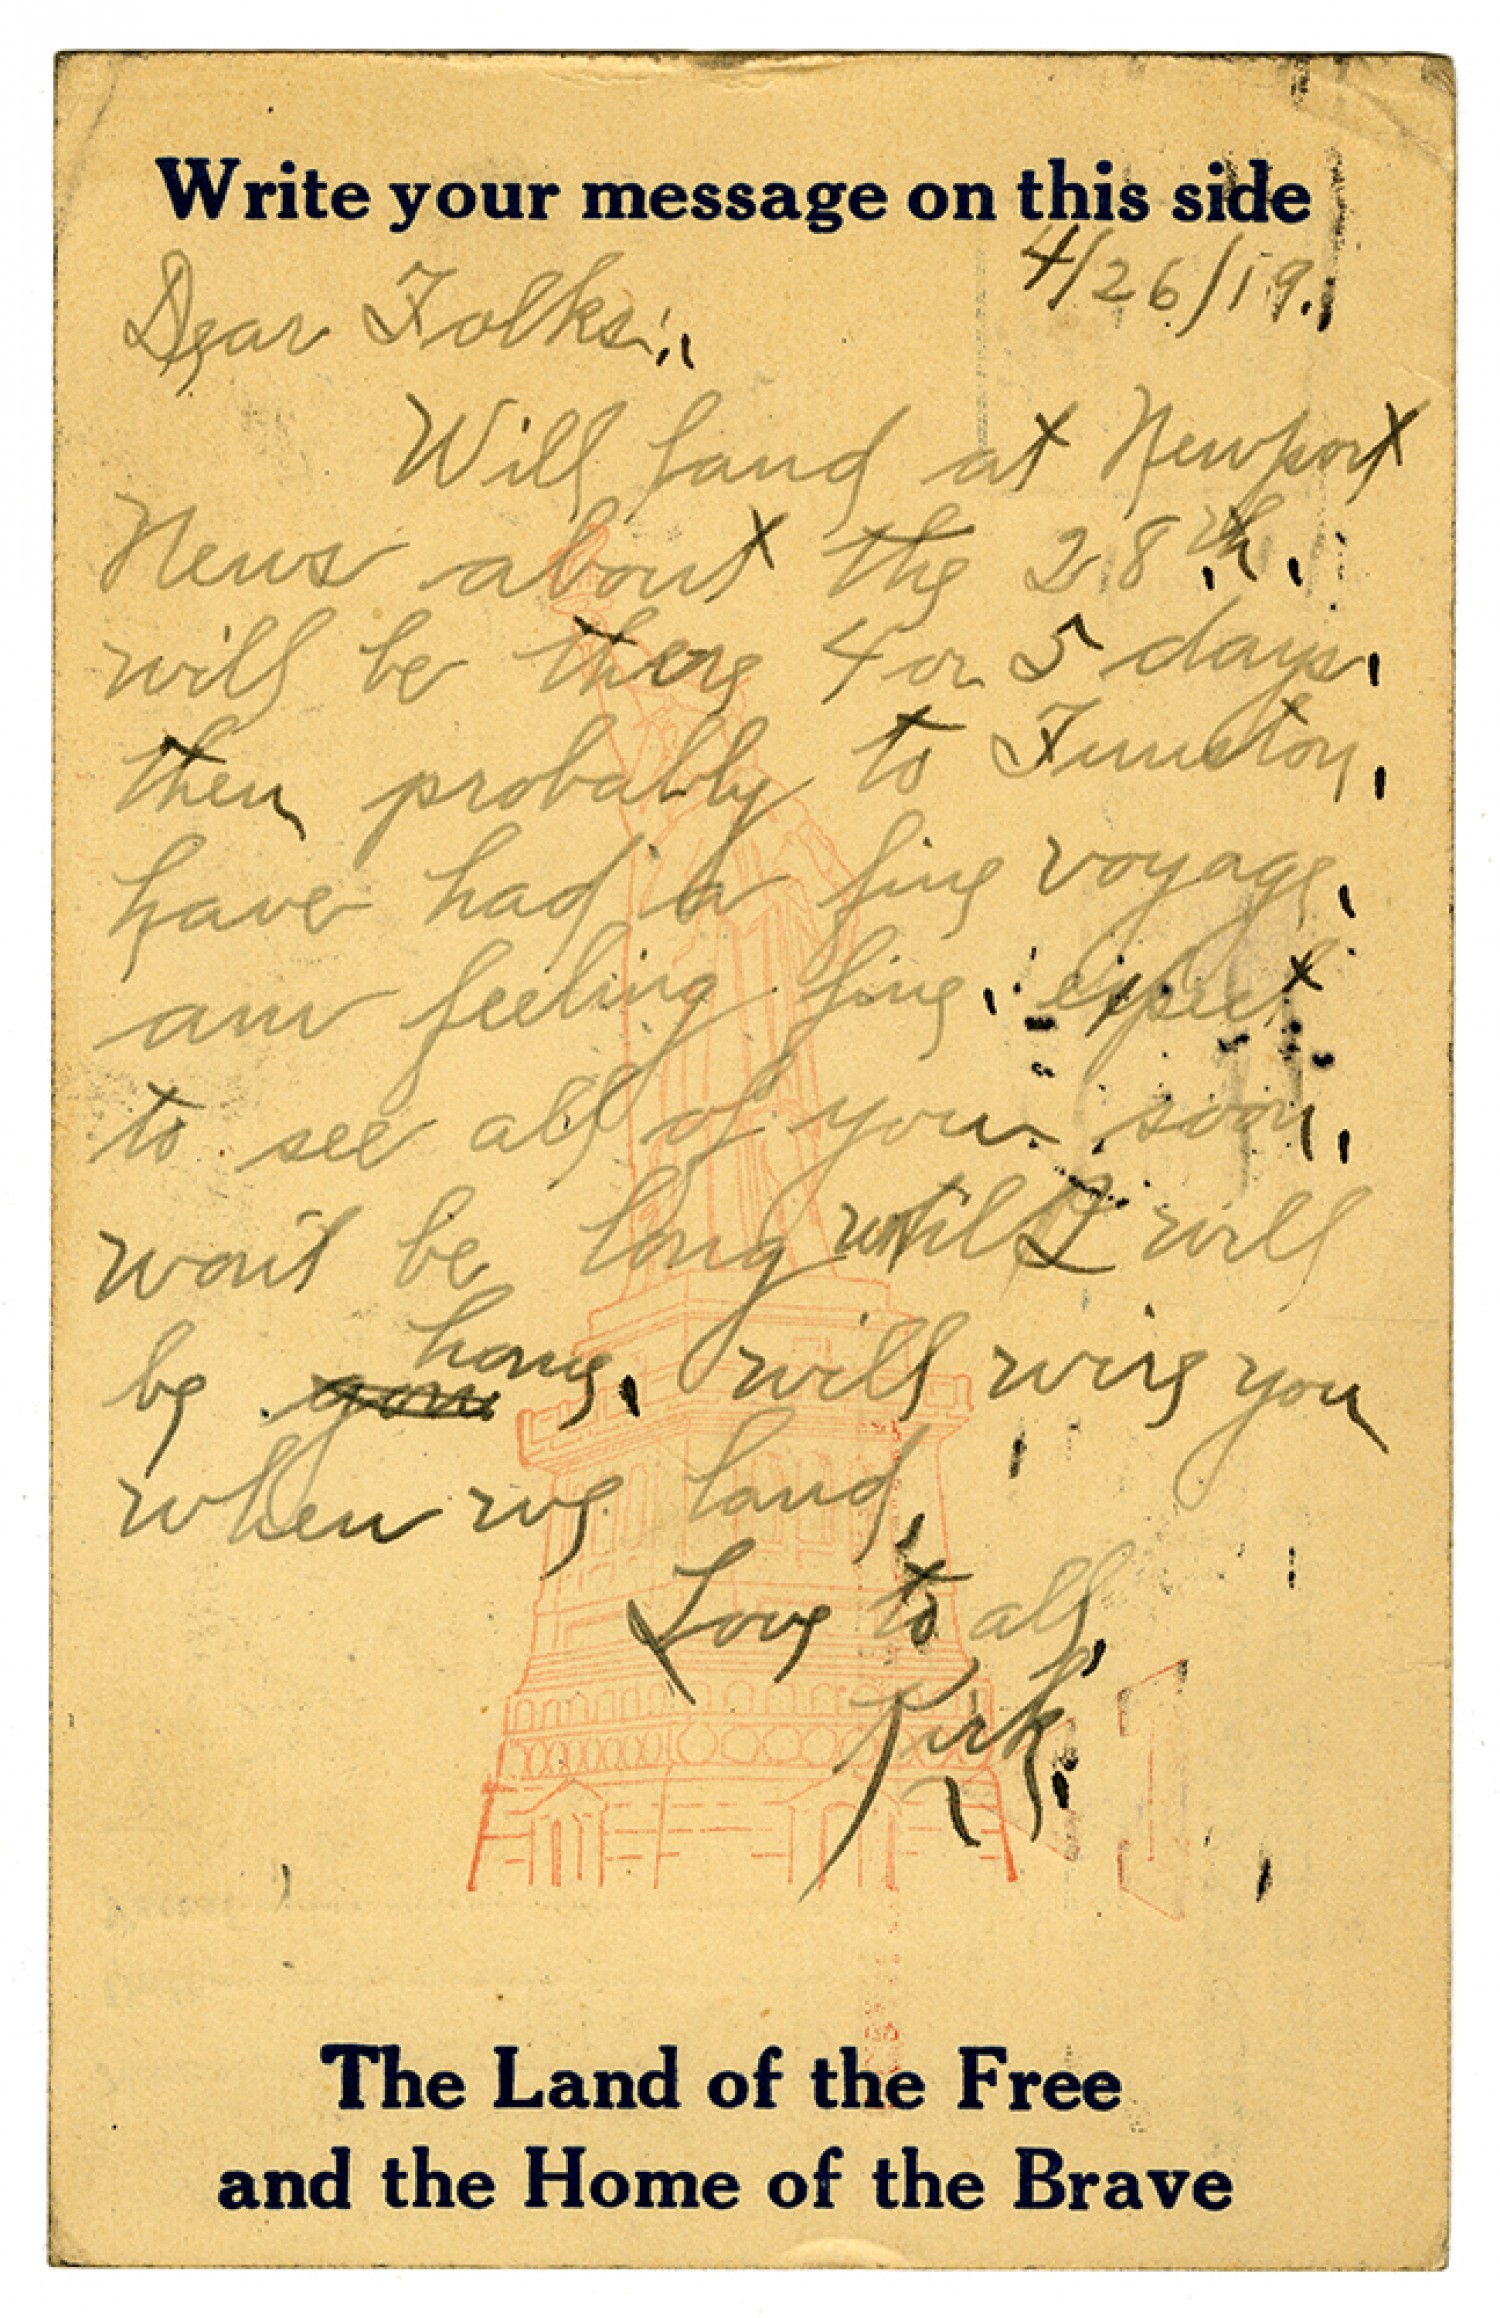 Write your message on this side
4/26/19.
Dear Folks:,
Will land at Newport
News about the 28th,
will be there 4 or 5 days,
then probably to Funston,
have had a fine voyage,
am feeling fine, expect
to see all of you soon,
won't be long until I will
be home, will wire you
when we land,
Love to all,
Kirk
The Land of the Free
and the Home of the Brave